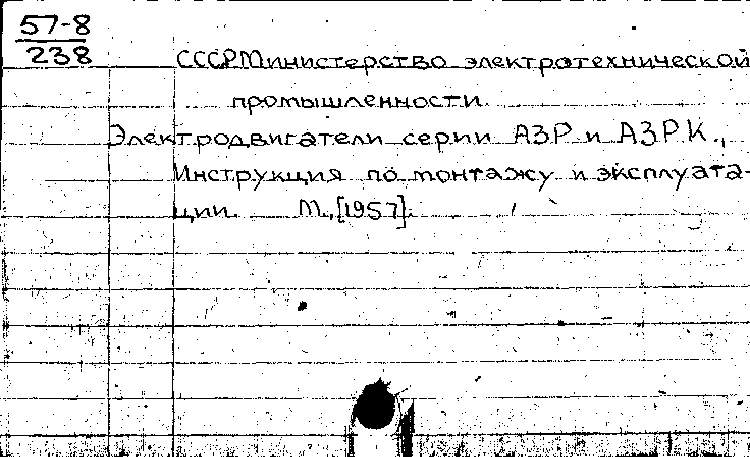 57-8
238
СССР Министерство электротехнической
промышленности.
Электродвигатели серии АЗР и АЗРК.,
Инструкция по монтажу и эксплуата-
ции. М.,[1957].